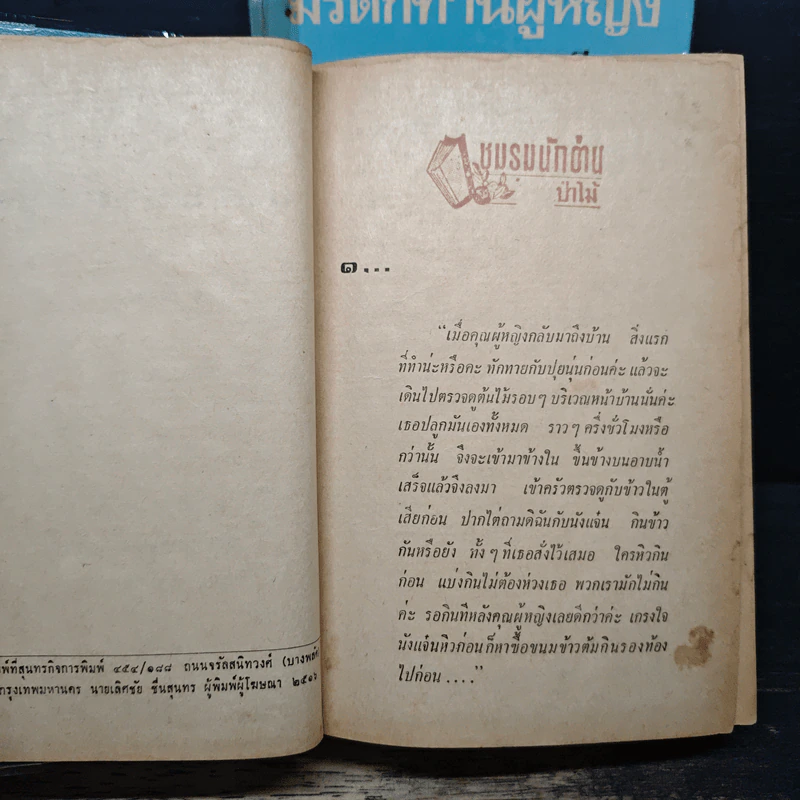 มรดกท่านผู้หญิง
ชมรมนักอ่าน
ป่าไม้
๑...
"เมื่อคุณผู้หญิงกลับมาถึงบ้าน สิ่งแรก
ที่ทำน่ะหรือคะ ทักทายกับปุยนุ่นก่อนค่ะ แล้วจะ
เดินไปตรวจดูต้นไม้รอบๆ บริเวณหน้าบ้านนั่นค่ะ
เธอปลูกมันเองทั้งหมด ราวๆ ครึ่งชั่วโมงหรือ
กว่านั้น จึงจะเข้ามาข้างใน ขึ้นข้างบนอาบน้ำ
เสร็จแล้วจึงลงมา เข้าครัวตรวจดูกับข้าวในตู้
เสียก่อน ปากไต่ถามดิฉันกับนังแจ๋น กินข้าว
กันหรือยัง ทั้งๆ ที่เธอสั่งไว้เสมอ ใครหิวกิน
ก่อน แบ่งกินไม่ต้องห่วงเธอ พวกเรามักไม่กิน
ค่ะ รอกินทีหลังคุณผู้หญิงเลยดีกว่าค่ะ เกรงใจ
นังแจ๋นหิวก่อนก็หาซื้อขนมข้าวต้มกินรองท้อง
ไปก่อน ...."
พ์ที่สุนทรกิจการพิมพ์ ๔๕๔/๑๘๘ ถนนจรัลสนิทวงศ์ (บางพลัด
กรุงเทพมหานคร นายเลิศชัย ชื่นสุนทร ผู้พิมพ์ผู้โฆษณา ๒๕๑๖